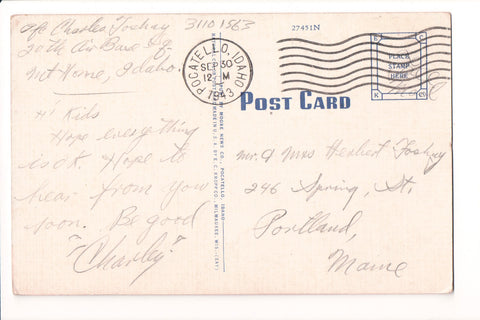 Pfc Charles Foshay
20th Air Base Sq.
Mt Home, Idaho.
3110 1563
Hi Kids
Hope everything
is O.K. Hope to
hear from you
soon. Be good
"Charley"
27451N
POCATELLO, IDAHO
SEP 30
12 M
1943
PLACE
STAMP
HERE
POST CARD
Mr. & Mrs Herbert Foshay
246 Spring, St.
Portland,
Maine